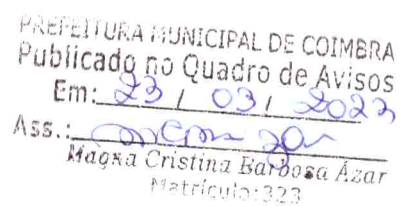 PREFEITURA MUNICIPAL DE COIMBRA
Publicado no Quadro de Avisos
Em: 23 / 03 / 2023
Ass.:
Magna Cristina Barbosa Azar
Matrícula:323